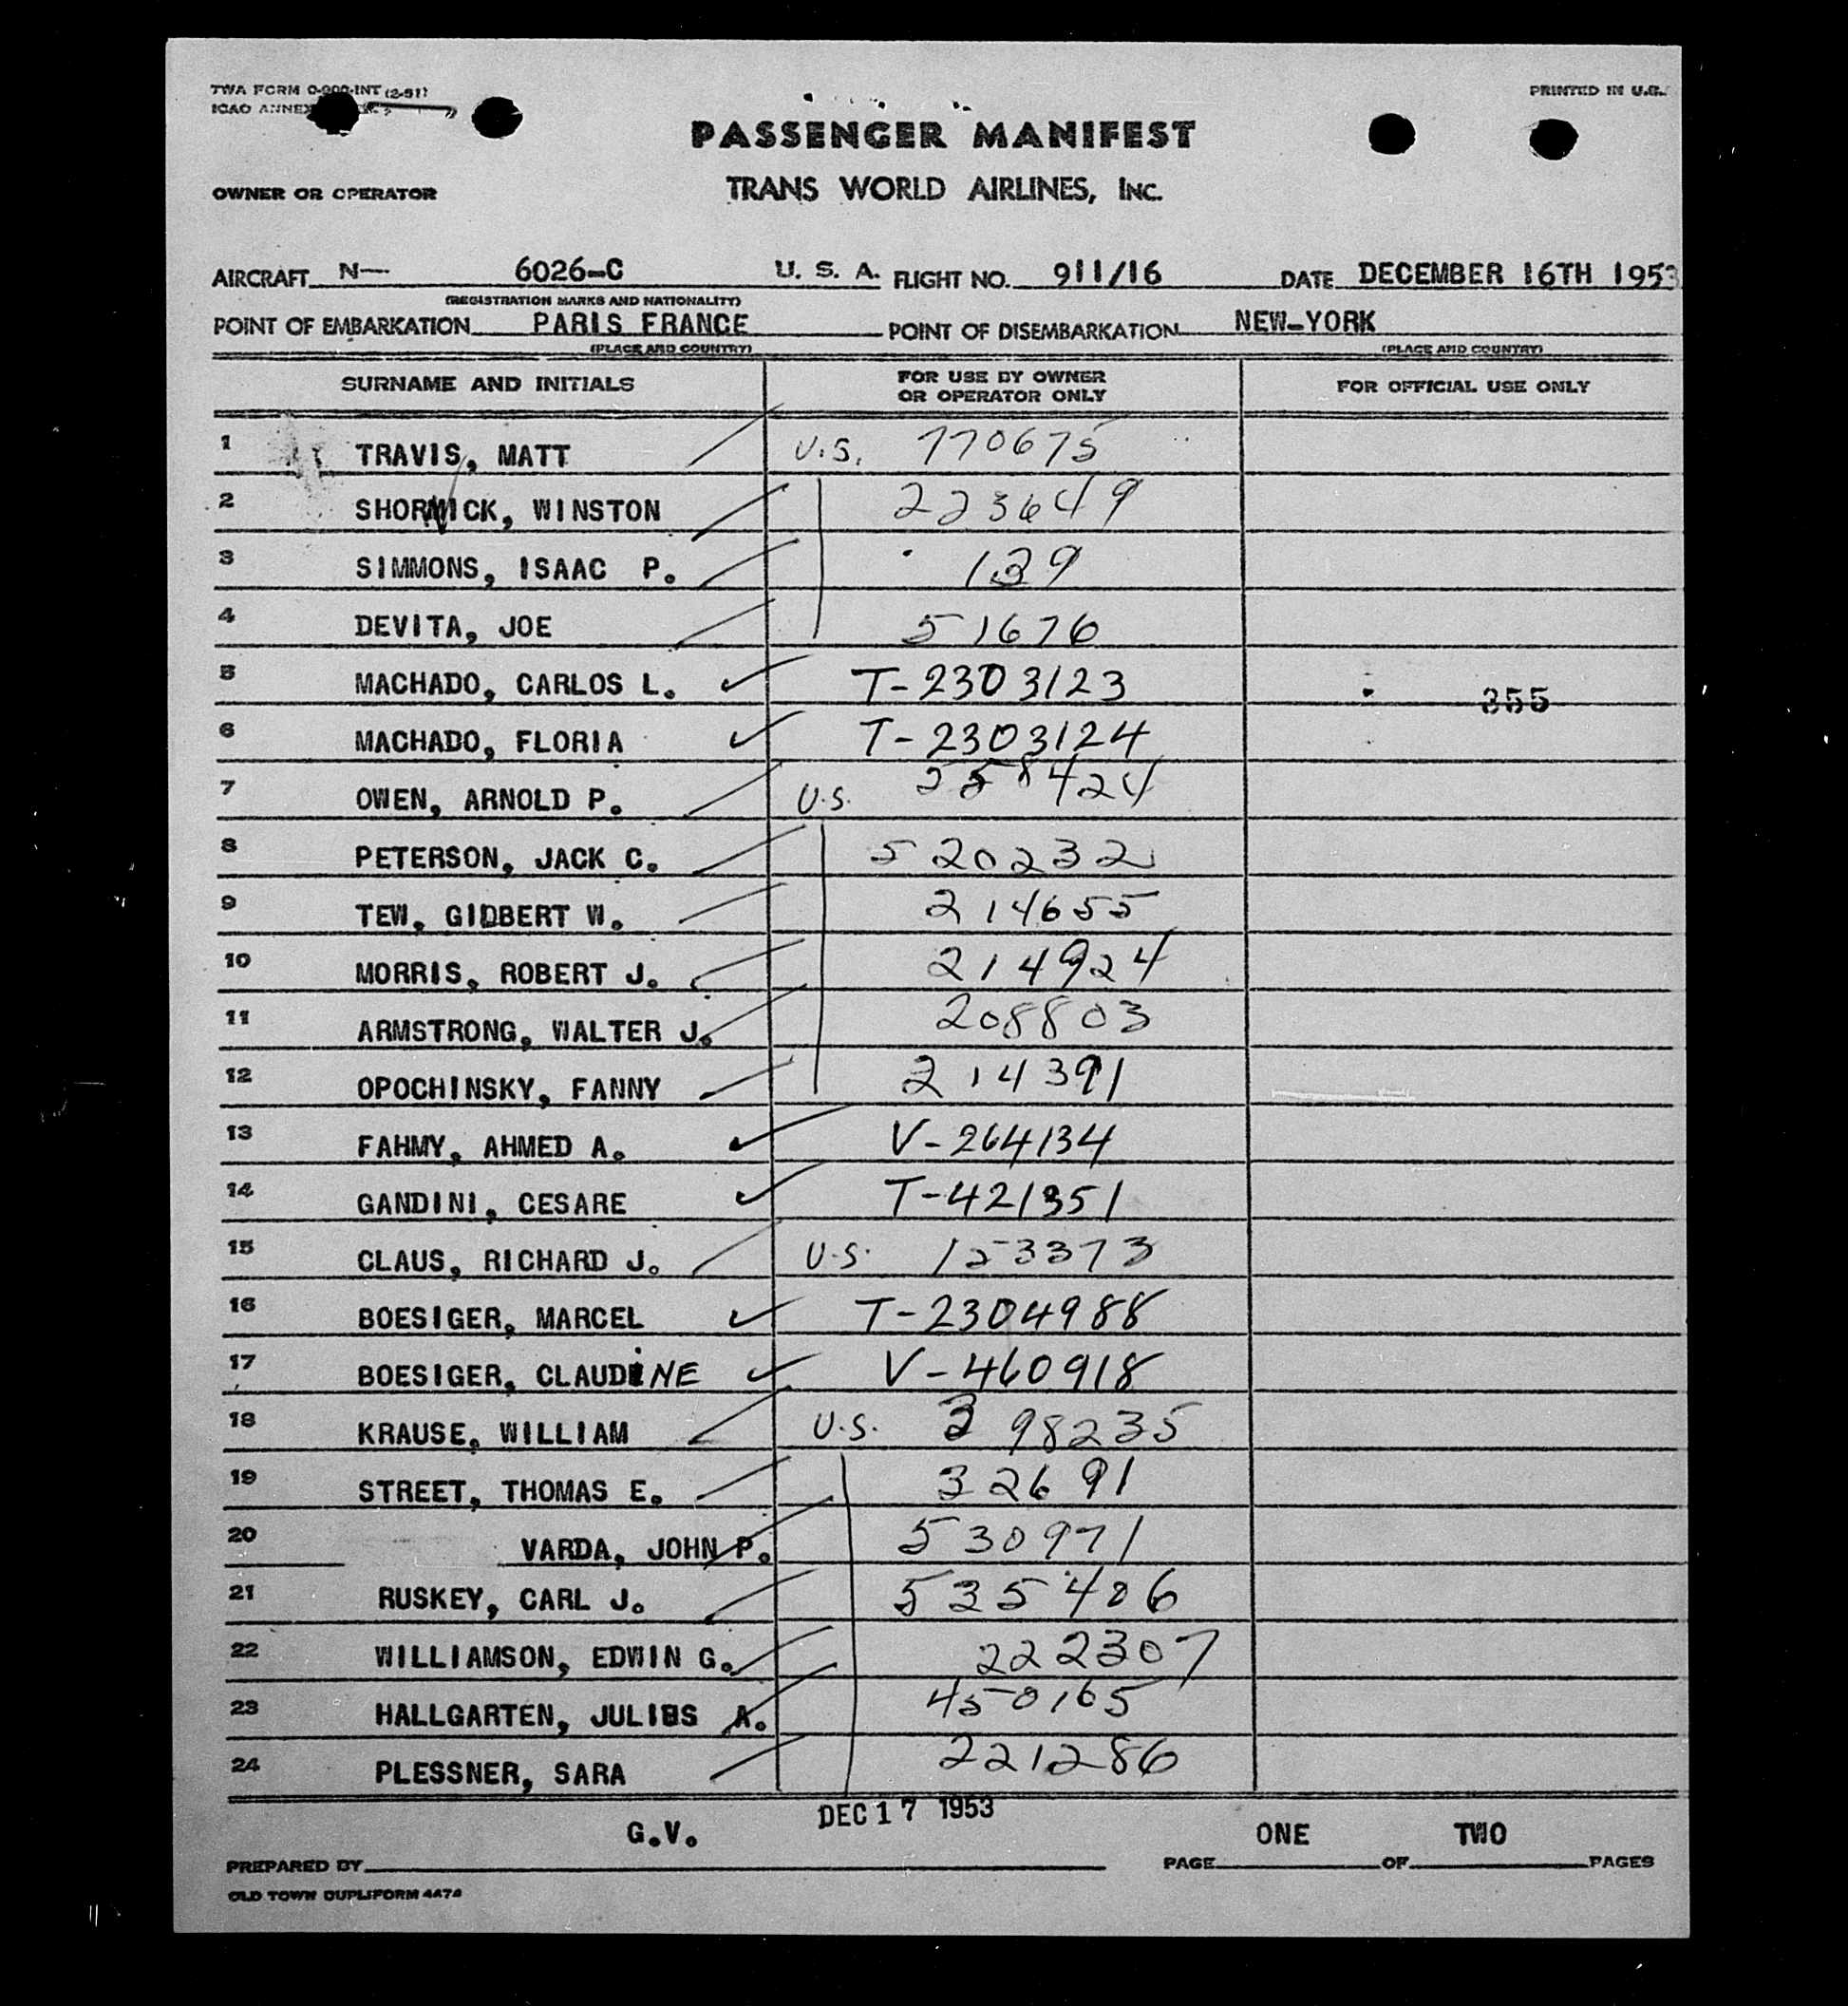 TWA FORM O-900-INT (2-51)
ICAO ANNEX
PRINTED IN U.S.
PASSENGER MANIFEST
OWNER OR OPERATOR TRANS WORLD AIRLINES, INC.
AIRCRAFT N— 6026-C U. S. A. FLIGHT NO. 911/16 DATE DECEMBER 16TH 1953
(REGISTRATION MARKS AND NATIONALITY)
POINT OF EMBARKATION PARIS FRANCE POINT OF DISEMBARKATION NEW-YORK
(PLACE AND COUNTRY) (PLACE AND COUNTRY)
SURNAME AND INITIALS FOR USE BY OWNER OR OPERATOR ONLY FOR OFFICIAL USE ONLY
1 TRAVIS, MATT U.S. 770675
2 SHORMICK, WINSTON 223649
3 SIMMONS, ISAAC P. 139
4 DEVITA, JOE 51676
5 MACHADO, CARLOS L. T-2303123 355
6 MACHADO, FLORIA T-2303124
7 OWEN, ARNOLD P. U.S. 258424
8 PETERSON, JACK C. 520232
9 TEW, GIDBERT W. 214655
10 MORRIS, ROBERT J. 214924
11 ARMSTRONG, WALTER J. 208803
12 OPOCHINSKY, FANNY 214391
13 FAHMY, AHMED A. V-264134
14 GANDINI, CESARE T-421351
15 CLAUS, RICHARD J. U.S. 153373
16 BOESIGER, MARCEL T-2304988
17 BOESIGER, CLAUDINE V-460918
18 KRAUSE, WILLIAM U.S. 398235
19 STREET, THOMAS E. 32691
20 VARDA, JOHN P. 530971
21 RUSKEY, CARL J. 535406
22 WILLIAMSON, EDWIN G. 222307
23 HALLGARTEN, JULIUS A. 450165
24 PLESSNER, SARA 221286
DEC 17 1953
PREPARED BY G.V. PAGE ONE OF TWO PAGES
OLD TOWN DUPLIFORM 4474